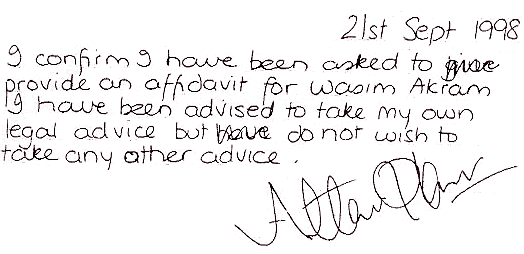 21st Sept 1998
I confirm I have been asked to give
provide an affidavit for Wasim Akram
I have been advised to take my own
legal advice but have do not wish to
take any other advice.